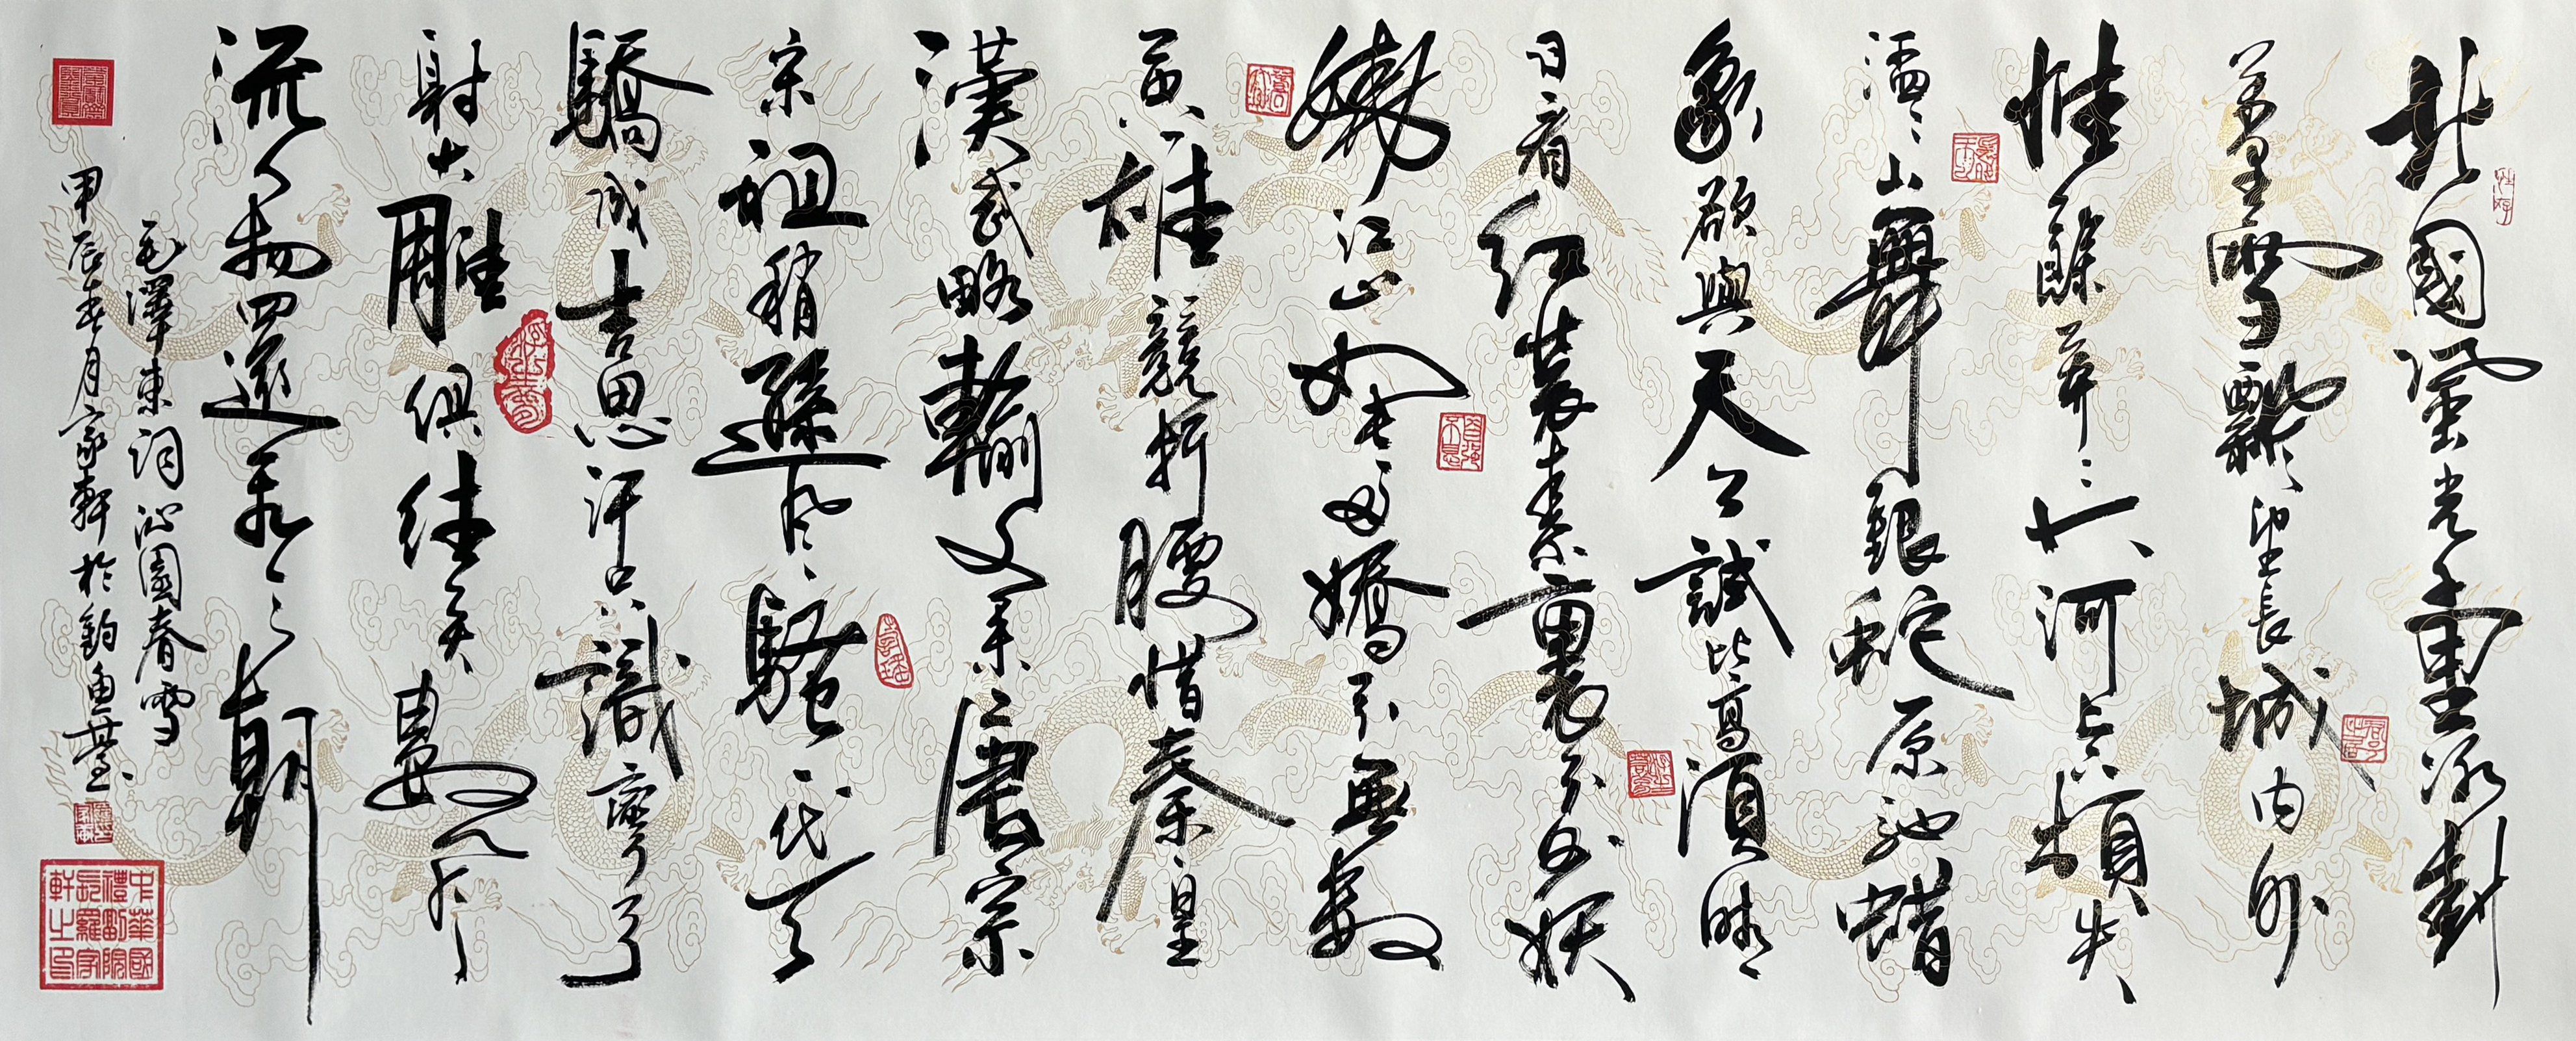 北國風光千里冰封
萬里雪飄望長城內外
惟餘莽〻大河上下頓失
滔〻山舞銀蛇原馳蠟
象欲與天公試比高須晴
日看紅裝素裹分外妖
嬈江山如此多嬌引無數
英雄競折腰惜秦皇
漢武略輸文采唐宗
宋祖稍遜風騷一代天
驕成吉思汗只識彎弓
射大雕俱往矣數風
流人物還看今朝
毛澤東詞沁園春雪
甲辰春月家軒於釣魚臺
中華國
長羅家
軒之印